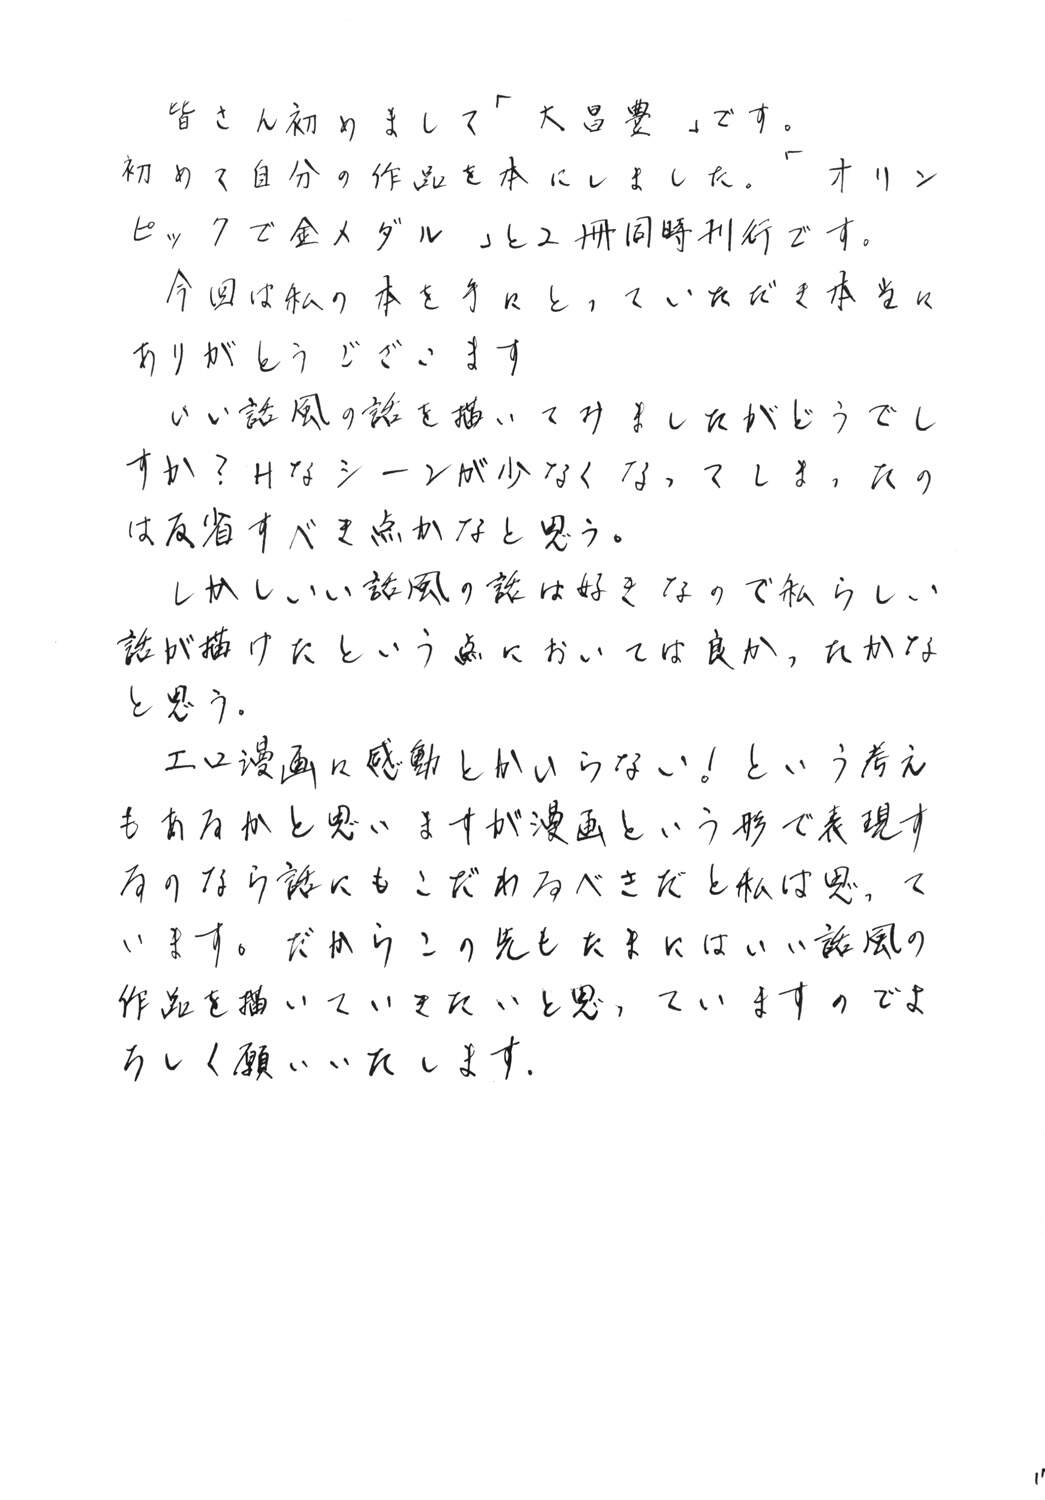 皆さん初めまして「大昌豊」です。
初めて自分の作品を本にしました。「オリン
ピックで金メダル」と2冊同時刊行です。
今回は私の本を手にとっていただき本当に
ありがとうございます
いい話風の話を描いてみましたがどうでし
すか?Hなシーンが少なくなってしまったの
は反省すべき点かなと思う。
しかしいい話風の話は好きなので私らしい
話が描けたという点においては良かったかな
と思う。
エロ漫画に感動とかいらない!という考え
もあるかと思いますが漫画という形で表現す
るのなら話にもこだわるべきだと私は思って
います。だからこの先もたまにはいい話風の
作品を描いていきたいと思っていますのでよ
ろしく願いいたします.